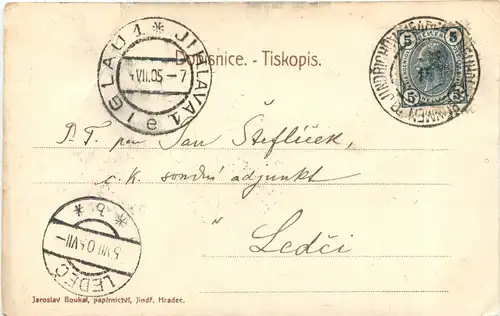 IGLAU 1 * JIHLAVA 1 e
4 VII.05 - 7
Dopisnice. - Tiskopis.
5 5
5 5
P. T. pan Jan Šteflíček
c. k. soudní adjunkt
v Ledči
* b *
5 VII 05 VII -
LEDEČ
Jaroslav Boukal, papírnictví, Jindř. Hradec.